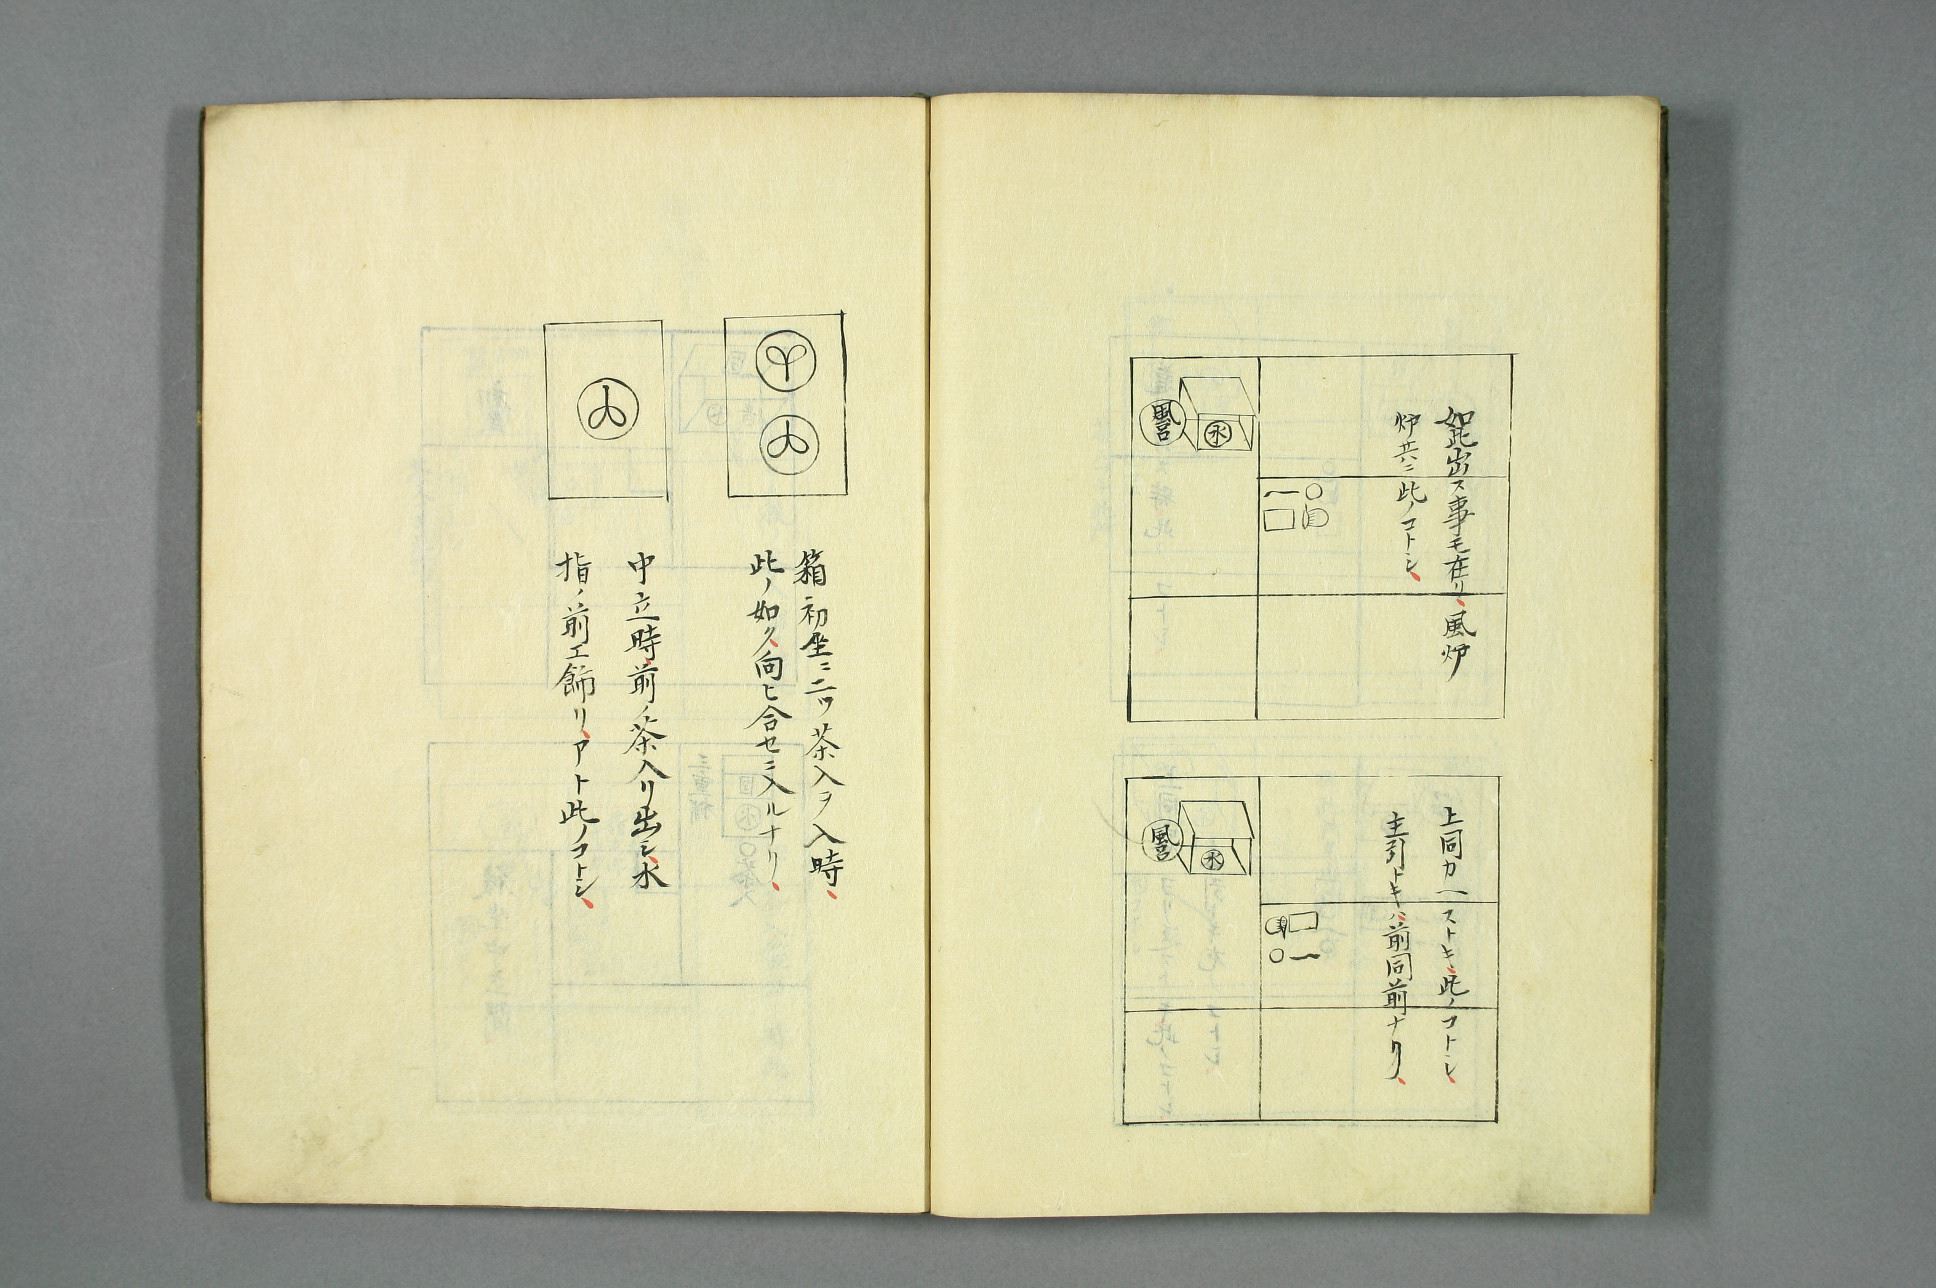 如此出ス事モ在リ、風炉
炉共ニ此ノコトシ、
風呂
水
上同カヘストキ、此ノコトシ、
主引トキハ、前同前ナリ、
風呂
水
箱初坐ニ二ツ茶入ヲ入時、
此ノ如ク、向ヒ合セニ入ルナリ、
中立時、前ノ茶入リ出シ、水
指ノ前エ飾リ、アト此ノコトシ、